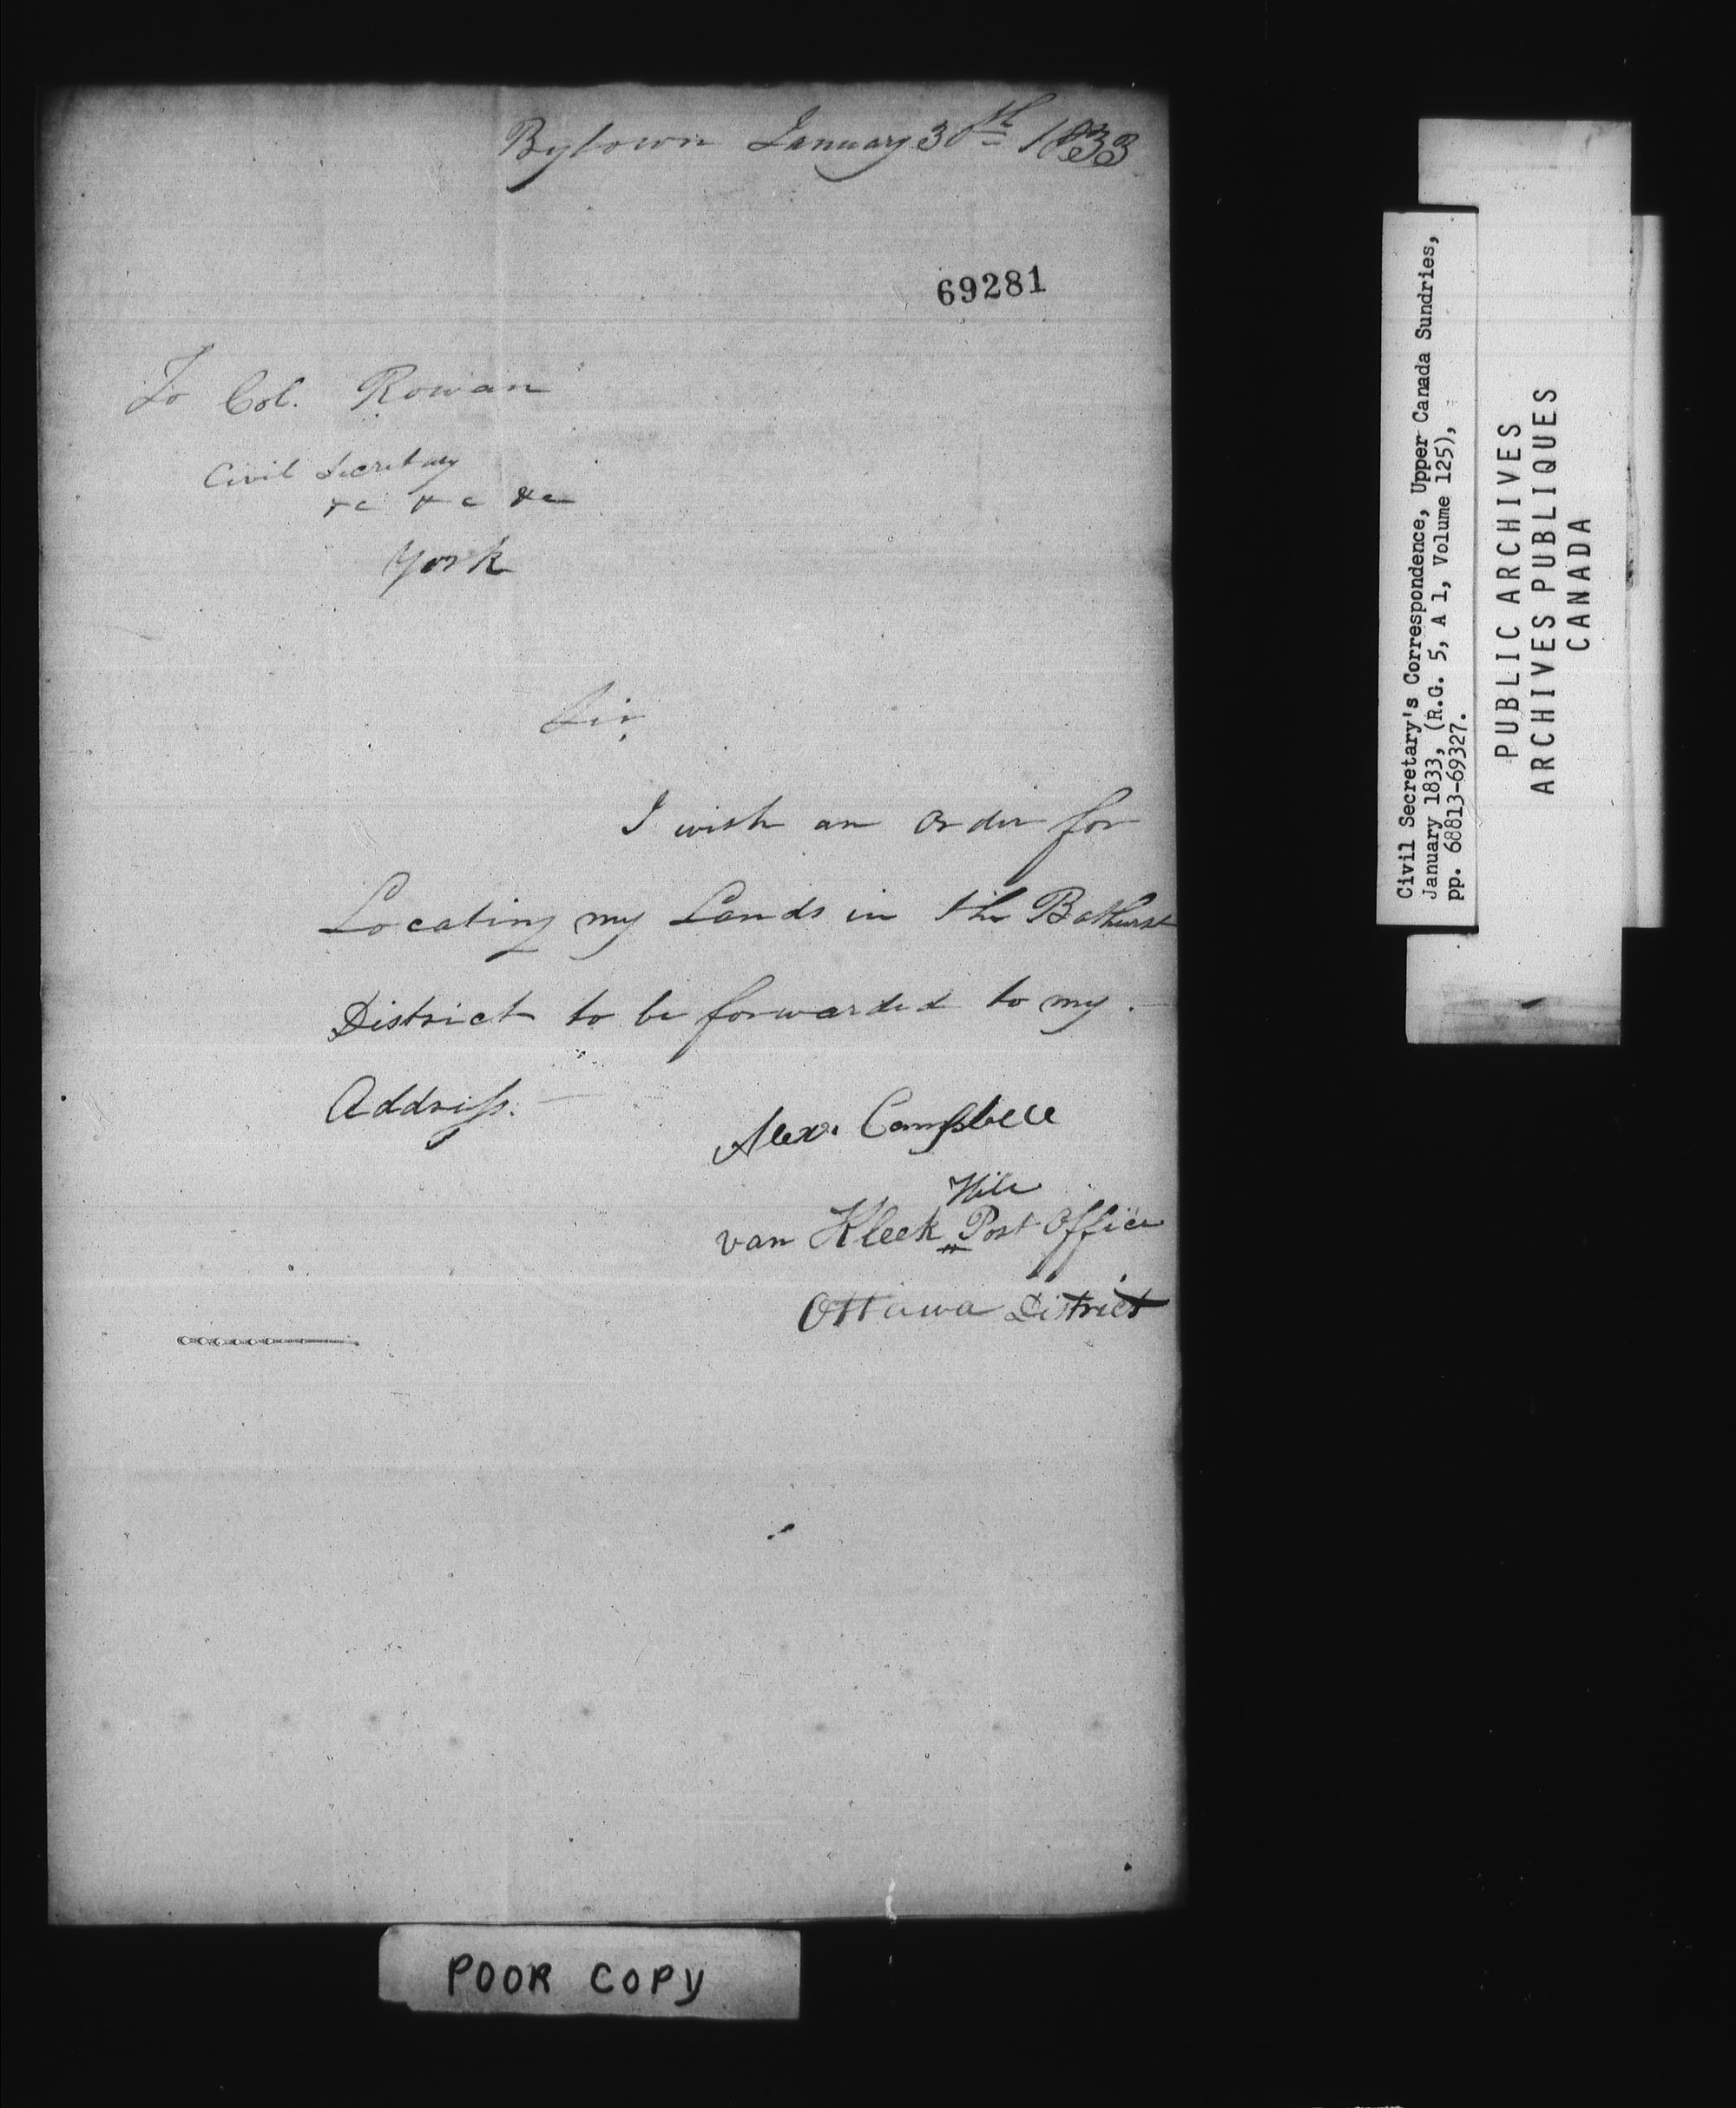 Bytown January 30th 1833
69281
To Col. Rowan
Civil Secretary
&c &c &c
York
Sir,
I wish an Order for
Locating my Lands in the Bathurst
District to be forwarded to my.
Address. —
Alexr. Campbell
Hill
van Kleek Post Office
Ottawa District
POOR COPY
Civil Secretary's Correspondence, Upper Canada Sundries,
January 1833, (R.G. 5, A 1, Volume 125),
pp. 68813-69327.
PUBLIC ARCHIVES
ARCHIVES PUBLIQUES
CANADA